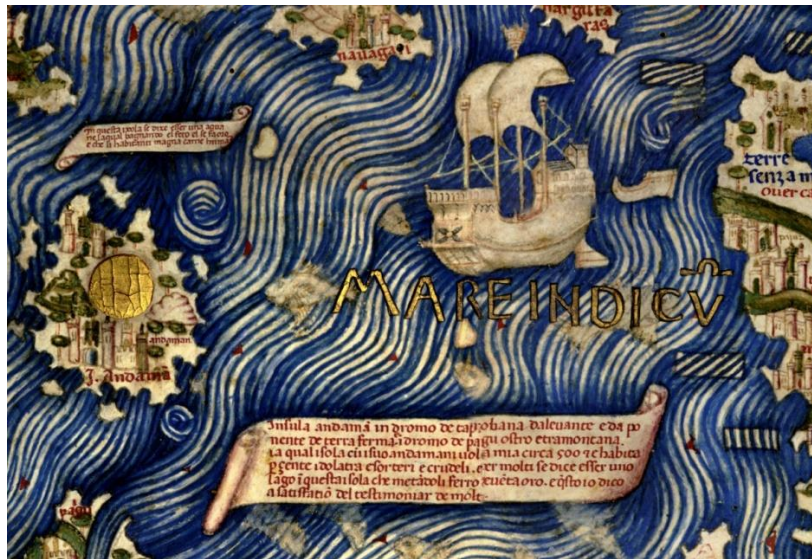 navagari
nargita
ras
In questa isola se dice esser una aqua
ne la qual bagnando el fero el se fa oro
e che li habitanti magna carne humana
terre
senz a m
over ca
andaman
I. Andamã
MARE INDICV̄
Insula andamã in dromo de taprobana dalevante e da po
nente de terra ferma dromo de pagu ostro e tramontana.
la qual isola mia circa 500 et è habita
ꝑ gente idolatra e sorteri e crudeli. et molti se dice esser uno
lago ĩ questa isola che metãdoli ferro oro. e q̃sto io dico
a satisfatiõ del testimoniar de molti.